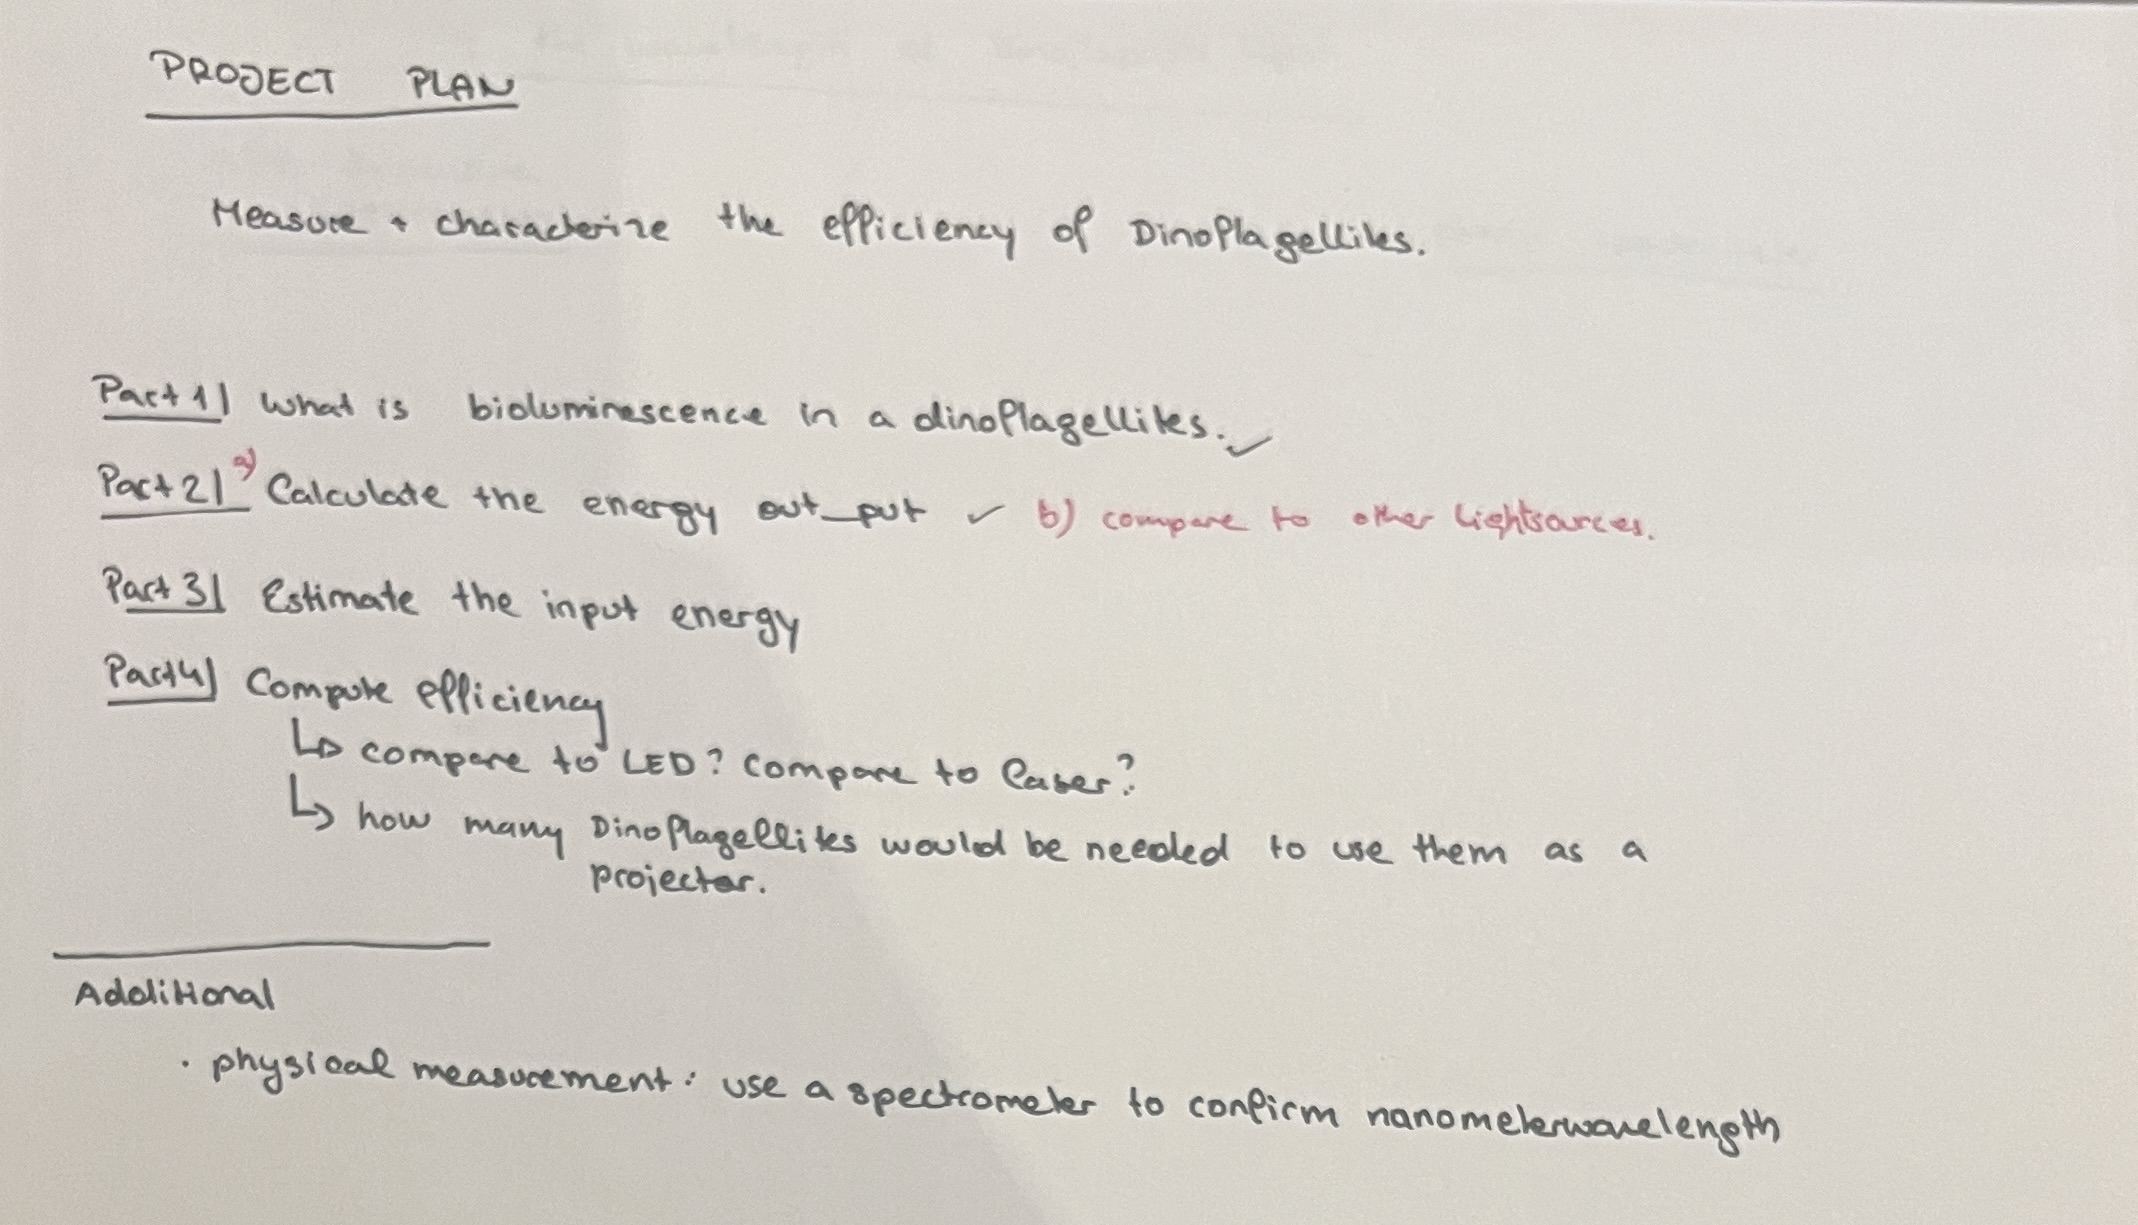 PROJECT PLAN
Measure + characterize the efficiency of Dinoflagellites.
Part 1| What is bioluminescence in a dinoflagellites. ✓
Part 2| a) Calculate the energy out_put ✓ b) compare to other lightsources.
Part 3| Estimate the input energy
Part 4| Compute efficiency
↳ compare to LED? compare to laser?
↳ how many Dinoflagellites would be needed to use them as a
projector.
Additional
· physical measurement: use a spectrometer to confirm nanometerwavelength